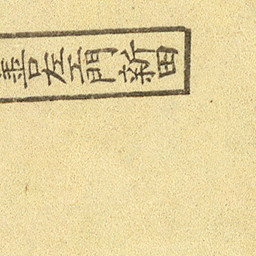 善左エ門新田